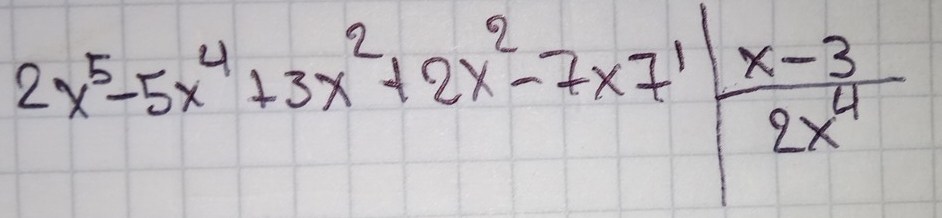 2x⁵-5x⁴+3x²+2x²-7x7' | x-3
2x⁴